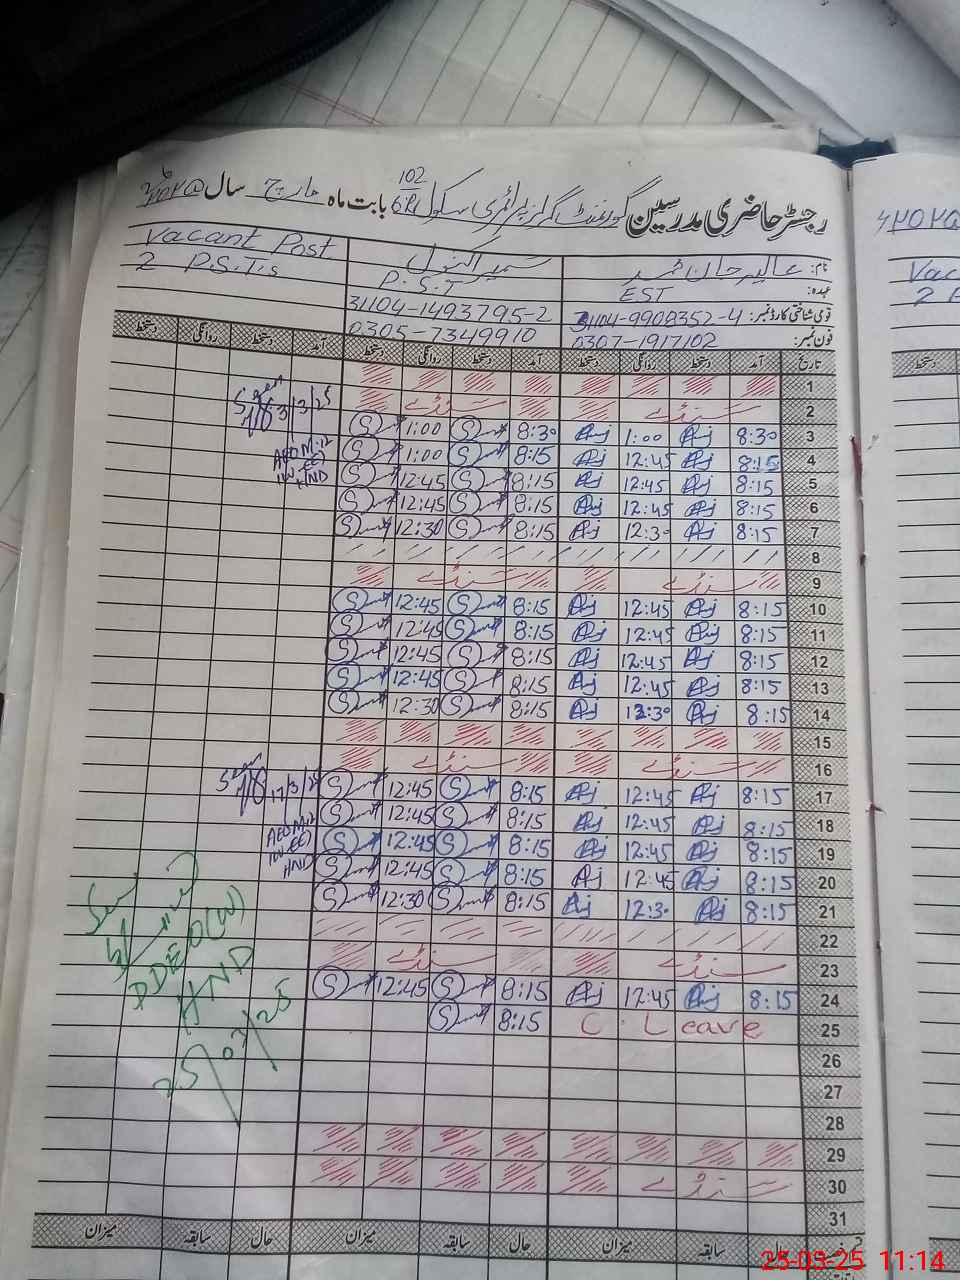 رجسٹر حاضری مدرسین گورنمنٹ گرلز پرائمری سکول 102/6R بابت ماہ مارچ سال ۲۰۲۵
نام: عالیہ جان محمد سمیرا کنول Vacant Post
عہدہ: EST P.S.T 2 P.S.T.s
قومی شناختی کارڈ نمبر: 31104-9908352-4 31104-1493795-2
فون نمبر: 0307-1917102 0305-7349910
تاریخ آمد دستخط روانگی دستخط آمد دستخط روانگی دستخط آمد دستخط روانگی دستخط
1
2 سنڈے سنڈے
3 8:30 1:00 8:30 1:00 3/3/25
4 8:15 12:45 8:15 1:00
5 8:15 12:45 8:15 12:45
6 8:15 12:45 8:15 12:45
7 8:15 12:30 8:15 12:30
8
9 سنڈے سنڈے
10 8:15 12:45 8:15 12:45
11 8:15 12:45 8:15 12:45
12 8:15 12:45 8:15 12:45
13 8:15 12:45 8:15 12:45
14 8:15 12:30 8:15 12:30
15
16 سنڈے سنڈے
17 8:15 12:45 8:15 12:45 17/3/25
18 8:15 12:45 8:15 12:45
19 8:15 12:45 8:15 12:45
20 8:15 12:45 8:15 12:45 HND
21 8:15 12:30 8:15 12:30
22
23 سنڈے سنڈے
24 8:15 12:45 8:15 12:45
25 C. Leave 8:15
26
27
28
29
30 سنڈے
31
DDEO(W)
HND
25/03/25
حال سابقہ میزان حال سابقہ میزان حال سابقہ میزان
25-03-25 11:14